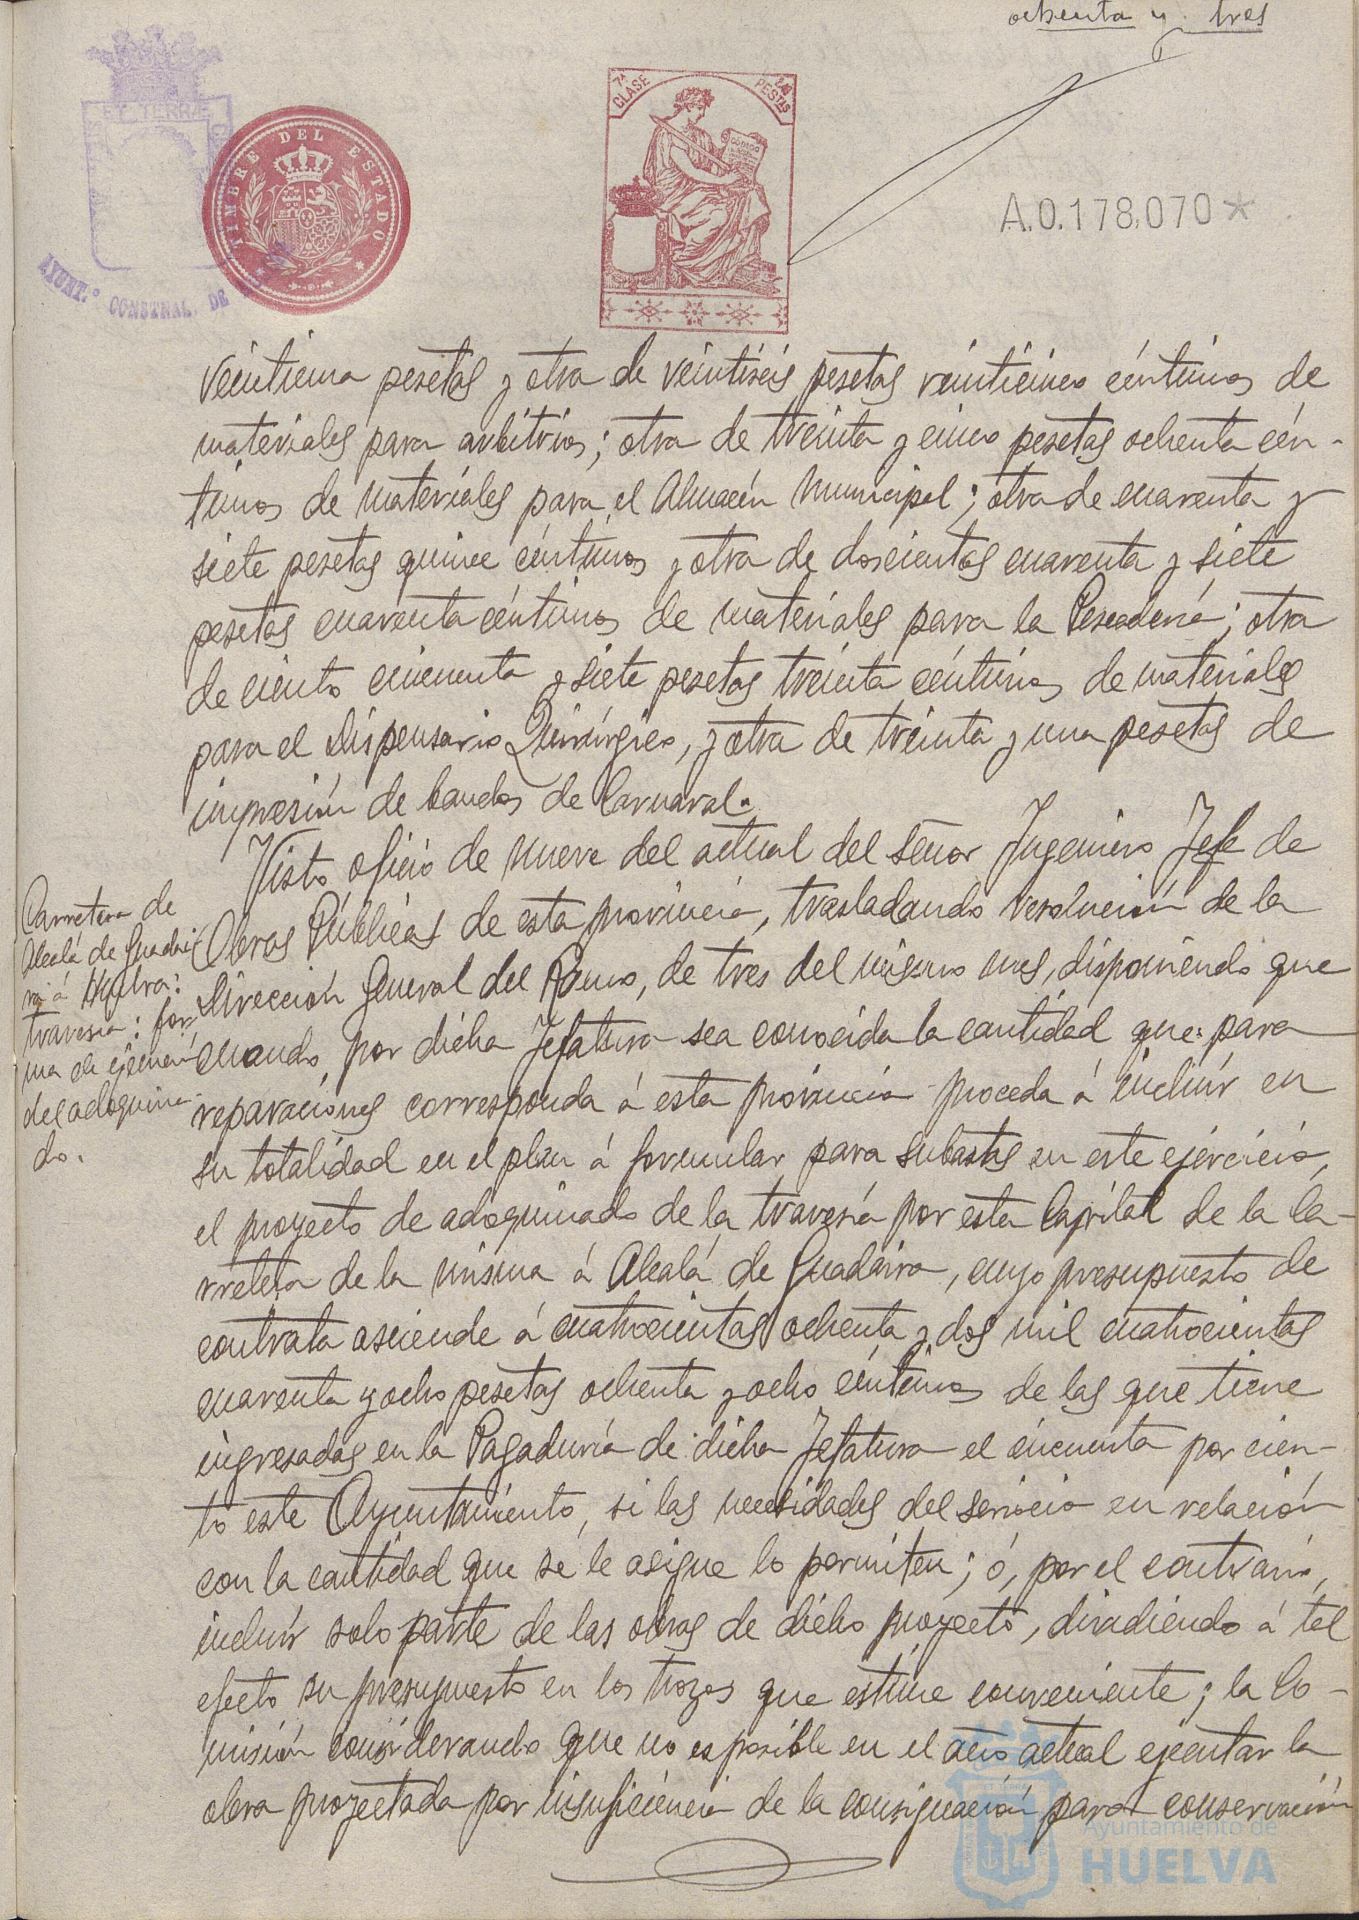 ochenta y tres
ET TERRÆ
AYUNT.º CONSTNAL. DE
TIMBRE DEL ESTADO
7ª CLASE
PESTAS
CODIGO
A.0.178,070*
veintiuna pesetas y otra de veintiseis pesetas veinticinco céntimos de
materiales para arbitrios; otra de treinta y cinco pesetas ochenta cén-
timos de materiales para el Almacén Municipal; otra de cuarenta y
siete pesetas quince céntimos y otra de doscientas cuarenta y siete
pesetas cuarenta céntimos de materiales para la Pescadería; otra
de ciento cincuenta y siete pesetas treinta céntimos de materiales
para el Dispensario Quirúrgico, y otra de treinta y una pesetas de
impresión de bandos de Carnaval.
Carretera de
Alcalá de Guadai
ra á Huelva:
travesia: for
ma de ejecución
del adoquina-
do.
Visto oficio de nueve del actual del señor Ingeniero Jefe de
Obras Públicas de esta provincia, trasladando resolución de la
Dirección General del Ramo, de tres del mismo mes, disponiendo que
cuando, por dicha Jefatura sea conocida la cantidad que para
reparaciones corresponda á esta provincia proceda á incluir en
su totalidad en el plan á formular para subastas en este ejercicio,
el proyecto de adoquinado de la travesía por esta Capital de la Ca-
rretera de la misma á Alcalá de Guadaira, cuyo presupuesto de
contrata asciende á cuatrocientas ochenta y dos mil cuatrocientas
cuarenta y ocho pesetas ochenta y ocho céntimos de las que tiene
ingresadas en la Pagaduría de dicha Jefatura el cincuenta por cien-
to este Ayuntamiento, si las necesidades del servicio en relación
con la cantidad que se le asigne lo permiten; ó, por el contrario,
incluir solo parte de las obras de dicho proyecto, dividiendo á tal
efecto su presupuesto en los trozos que estime conveniente; la Co-
misión considerando que no es posible en el año actual ejecutar la
obra proyectada por insuficiencia de la consignación para conservación
Ayuntamiento de
HUELVA